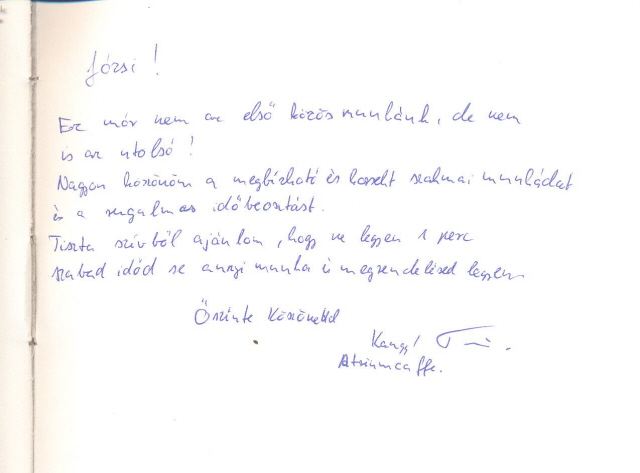 Józsi!
Ez már nem az első közös munkánk, de nem
is az utolsó!
Nagyon köszönöm a megbízható és korrekt szakmai munkádat
és a rugalmas időbeosztást.
Tiszta szívből ajánlom, hogy ne legyen 1 perc
szabad időd se annyi munka és megrendelésed legyen
Őszinte Köszönettel
Atriumcaffe.